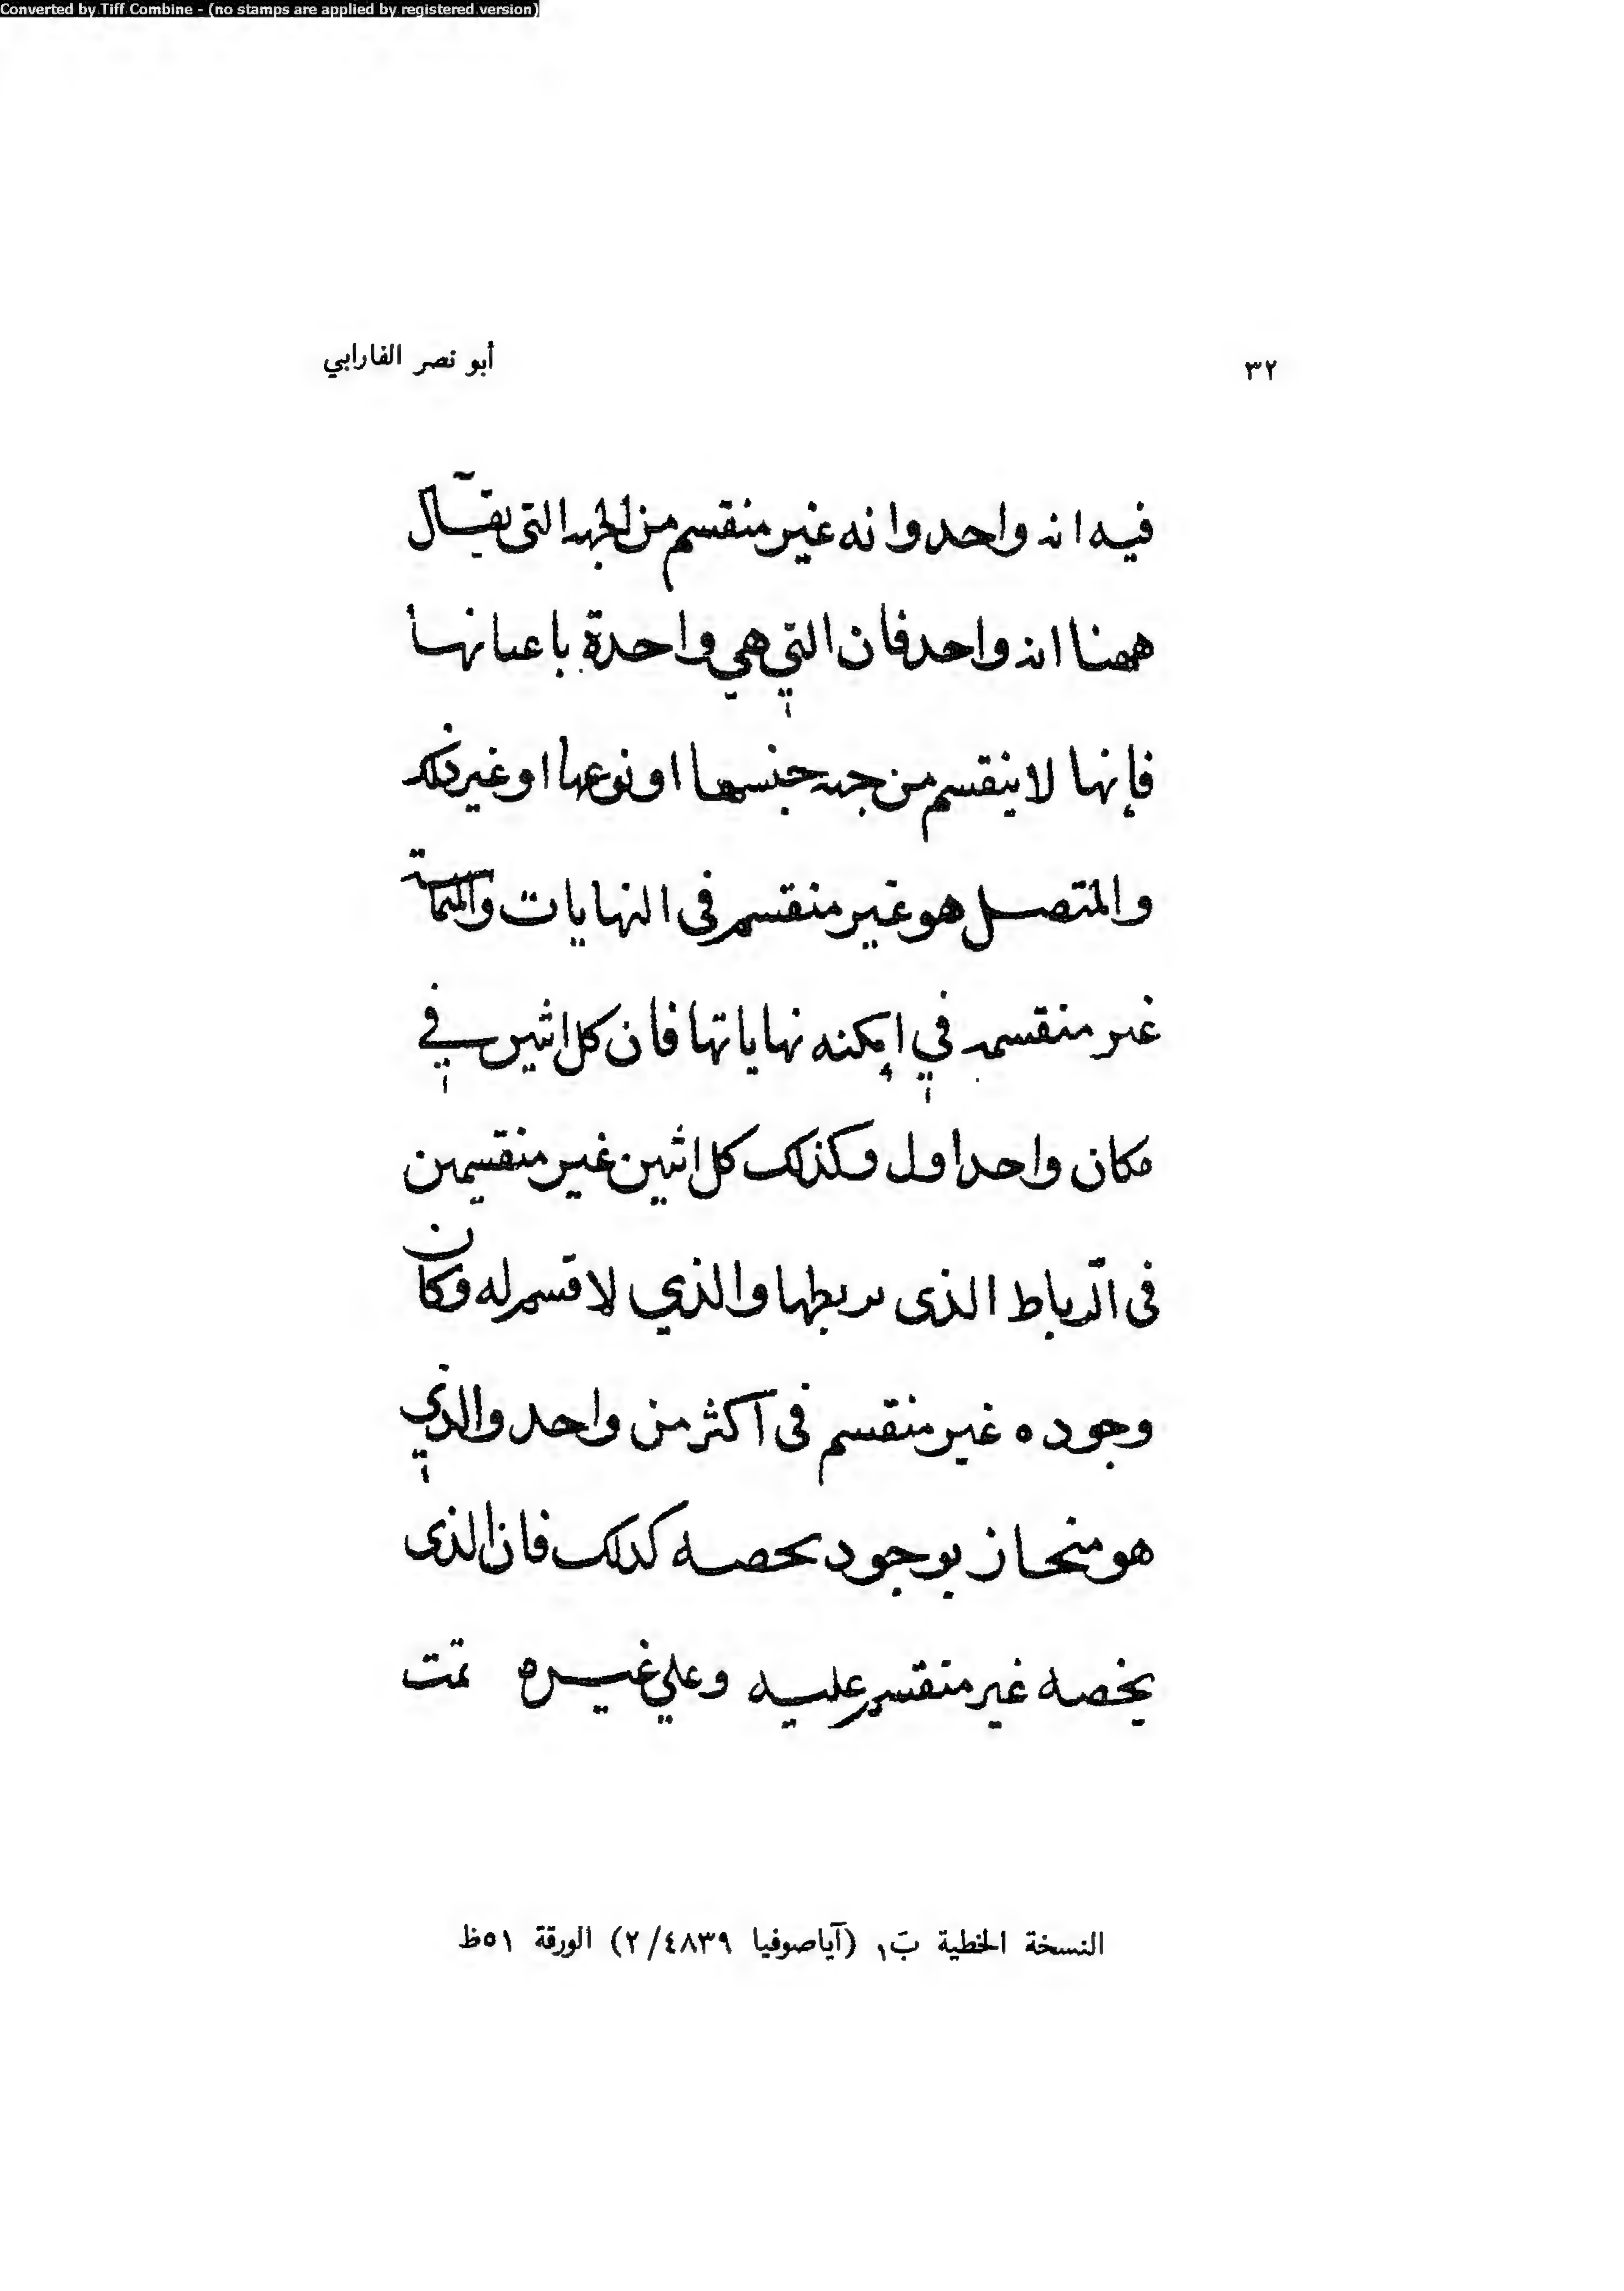 Converted by Tiff Combine - (no stamps are applied by registered version)
٣٢
أبو نصر الفارابي
فيه انه واحد وانه غير منقسم من الجهه التى يقال
ههنا انه واحد فان التي هي واحدة باعيانها
فإنها لا ينقسم من جهه جنسها او نوعها او غير ذلك
والمتصل هو غير منقسم فى النهايات والمماسة
غير منقسمه في امكنه نهاياتها فان كل اثنين في
مكان واحد اول وكذلك كل اثنين غير منقسمين
فى الرباط الذى يربطها والذي لا قسم له وكان
وجوده غير منقسم فى اكثر من واحد والذي
هو منحاز بوجود يخصه كذلك فان الذى
يخصه غير منقسم عليه وعلي غيره تمت
النسخة الخطية بَ١ (آياصوفيا ٤٨٣٩/٢) الورقة ٥١ظ